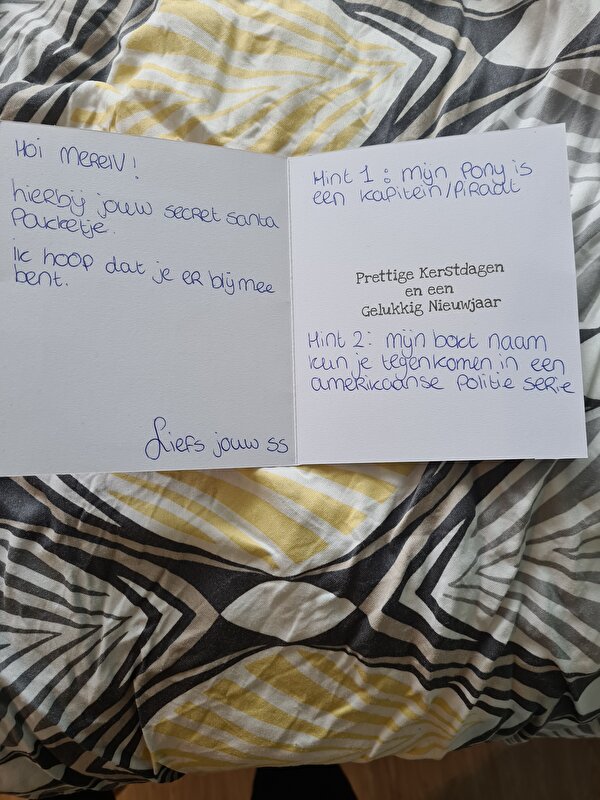 Hoi Merein!
hierbij jouw secret santa
Pakketje.
ik hoop dat je er blij mee
bent.
Liefs jouw ss
Hint 1: mijn Pony is
een kapitein/Piraat
Prettige Kerstdagen
en een
Gelukkig Nieuwjaar
Hint 2: mijn bokt naam
kun je tegenkomen in een
amerikaanse Politie serie